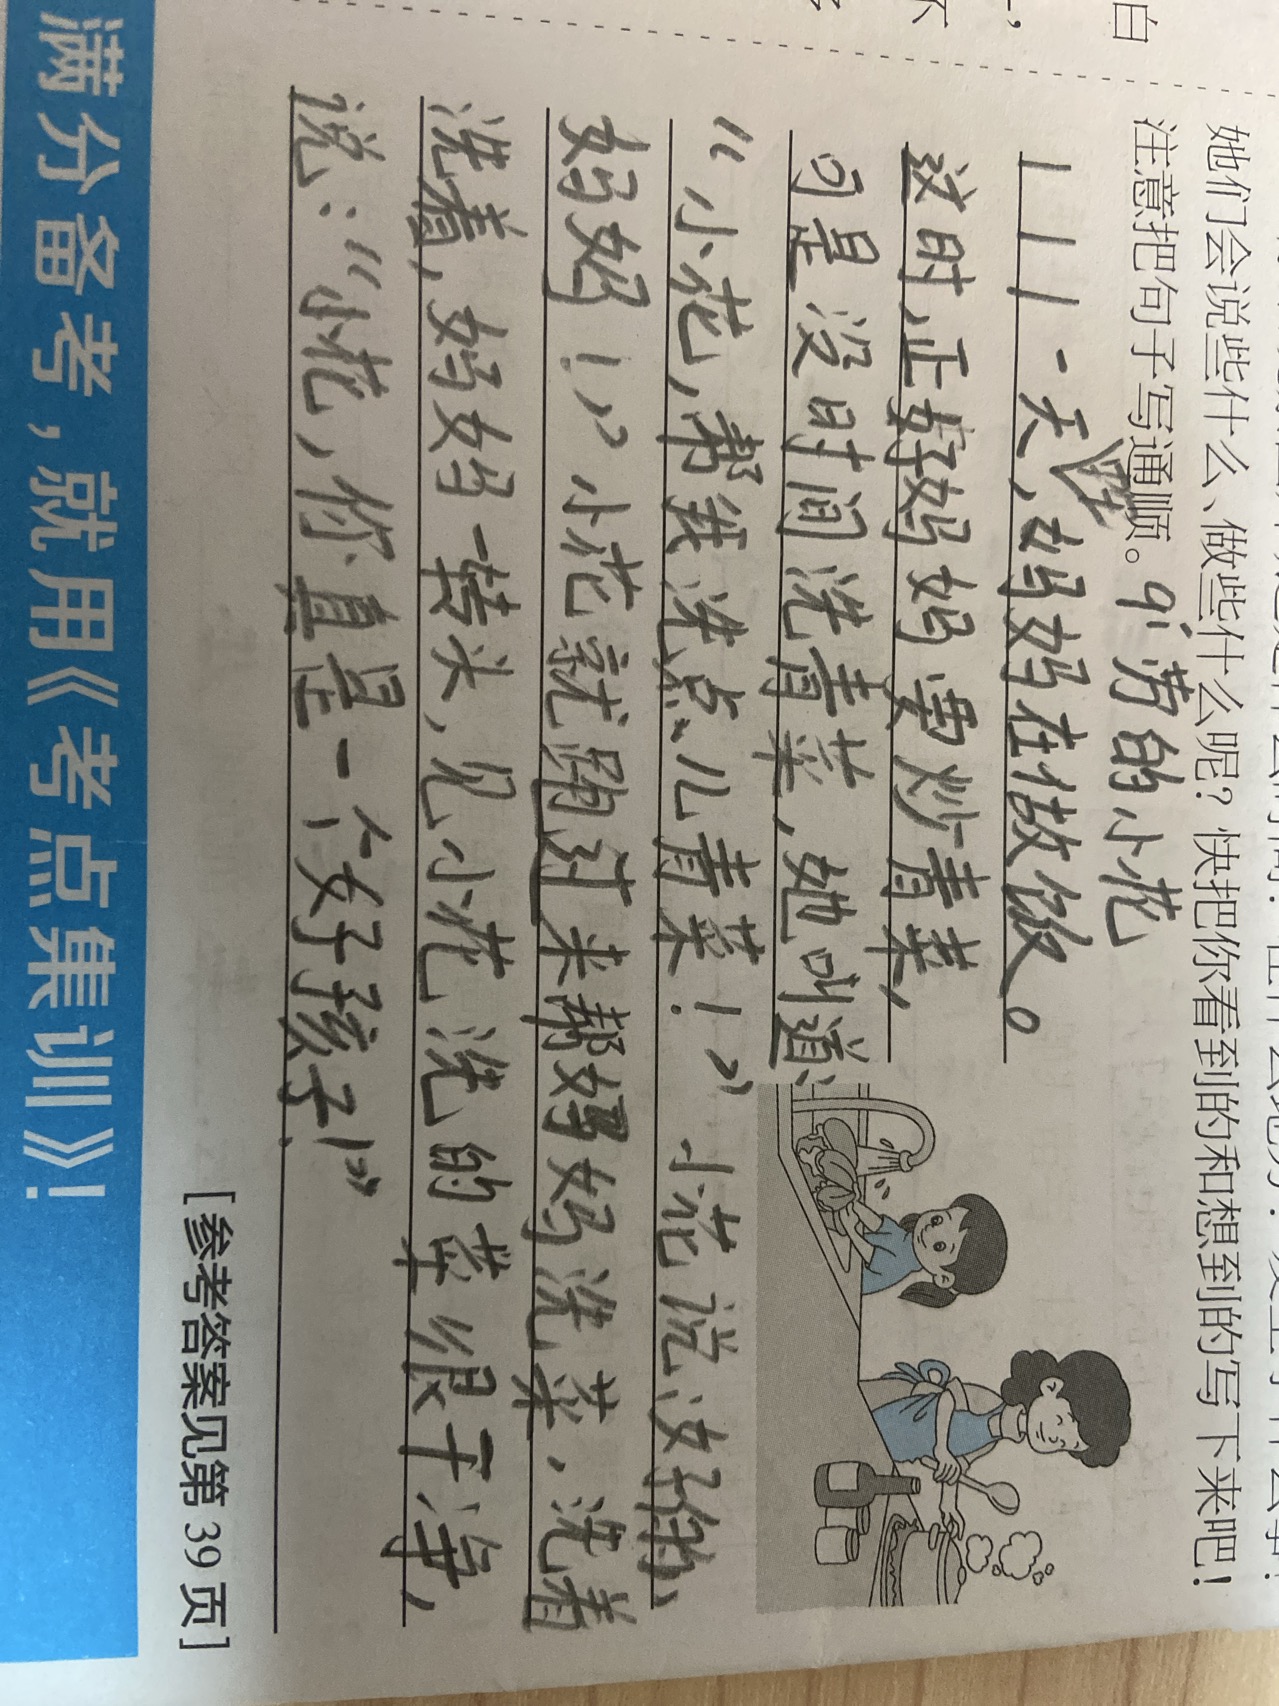 白
她们会说些什么、做些什么呢？快把你看到的和想到的写下来吧！
注意把句子写通顺。
qín劳的小花
一天，妈妈在做饭。
这时，正好妈妈要炒青菜，
可是没时间洗青菜，她叫道：
“小花，帮我洗点儿青菜！”小花说：“好的，
妈妈！”小花就跑过来帮妈妈洗菜，洗着
洗着，妈妈一转头，见小花洗的菜很干净，
说：“小花，你真是一个好孩子！”
[参考答案见第39页]
满分备考，就用《考点集训》！